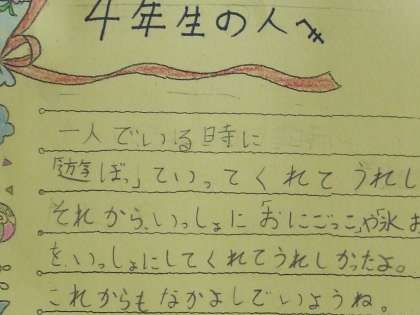 4年生の人へ
一人でいる時に
「遊ぼっ」ていってくれてうれし
それから、いっしょに「おにごっこ」や「氷お
を、いっしょにしてくれてうれしかったよ。
これからもなかよしでいようね。